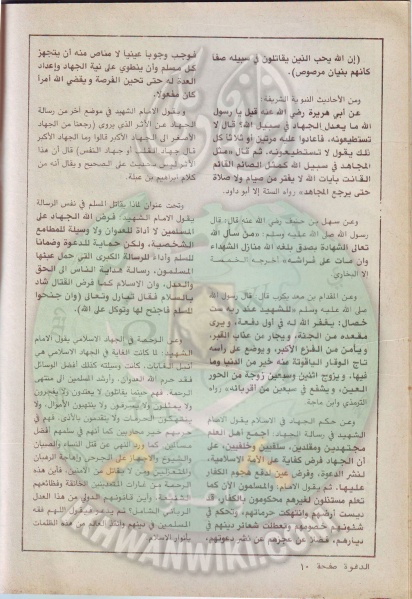 (إن الله يحب الذين يقاتلون في سبيله صفا
كأنهم بنيان مرصوص).
ومن الأحاديث النبوية الشريفة
عن أبي هريرة رضي الله عنه قيل يا رسول
الله ما يعدل الجهاد في سبيل الله؟ قال لا
تستطيعونه، فأعادوا عليه مرتين أو ثلاثا كل
ذلك يقول لا تستطيعونه، ثم قال «مثل
المجاهد في سبيل الله كمثل الصائم القائم
القانت بآيات الله لا يفتر من صيام ولا صلاة
حتى يرجع المجاهد» رواه الستة إلا أبو داود.
وعن سهل بن حنيف رضي الله عنه قال: قال
رسول الله صلى الله عليه وسلم: «من سأل الله
تعالى الشهادة بصدق بلغه الله منازل الشهداء
وإن مات على فراشه» أخرجه الخمسة
إلا البخاري
وعن المقدام بن معد يكرب قال: قال رسول الله
صلى الله عليه وسلم: «للشهيد عند ربه ست
خصال: يغفر الله له في أول دفعة، ويرى
مقعده من الجنة، ويجار من عذاب القبر،
ويأمن من الفزع الأكبر، ويوضع على رأسه
تاج الوقار الياقوتة منه خير من الدنيا وما
فيها، ويزوج اثنتين وسبعين زوجة من الحور
العين، ويشفع في سبعين من أقربائه» رواه
الترمذي وابن ماجة.
وعن حكم الجهاد في الاسلام يقول الامام
الشهيد في رسالة الجهاد: أجمع أهل العلم
مجتهدين ومقلدين، سلفيين وخلفيين، على
أن الجهاد فرض كفاية على الأمة الإسلامية،
لنشر الدعوة، وفرض عين لدفع هجوم الكفار
عليها، ثم يقول الامام: والمسلمون الآن كما
تعلم مستذلون لغيرهم محكومون بالكفار، قد
ديست أرضهم وانتهكت حرماتهم، وتحكم في
شئونهم خصومهم وتعطلت شعائر دينهم في
ديارهم، فضلا عن عجزهم عن نشر دعوتهم،
فوجب وجوبا عينيا لا مناص منه أن يتجهز
كل مسلم وأن ينطوي على نية الجهاد وإعداد
العدة له حتى تحين الفرصة و يقضي الله أمرا
كان مفعولا.
ويقول الامام الشهيد في موضع آخر من رسالة
الجهاد عن الأثر الذي يروى (رجعنا من الجهاد
الأصغر إلى الجهاد الأكبر قالوا وما الجهاد الأكبر
قال جهاد القلب أو جهاد النفس) قال أن هذا
الأثر ليس بحديث على الصحيح ويقال أنه من
كلام ابراهيم بن عبلة.
وتحت عنوان لماذا يقاتل المسلم في نفس الرسالة
يقول الامام الشهيد: فرض الله الجهاد على
المسلمين لا أداة للعدوان ولا وسيلة للمطامع
الشخصية، ولكن حماية للدعوة وضمانا
للسلم وأداء للرسالة الكبرى التي حمل عبئها
المسلمون، رسالة هداية الناس الى الحق
والعدل، وان الاسلام كما فرض القتال شاد
بالسلام فقال تبارك وتعالى (وإن جنحوا
للسلم فاجنح لها وتوكل على الله).
وعن الرحمة في الجهاد الاسلامي يقول الامام
الشهيد: لما كانت الغاية في الجهاد الاسلامي هي
أنبل الغايات، كانت وسيلته كذلك أفضل الوسائل
فقد حرم الله العدوان، وأرشد المسلمين الى منتهى
الرحمة، فهم حينما يقاتلون لا يعتدون ولا يفجرون
ولا يمثلون ولا يسرقون ولا ينتهبون الأموال، ولا
ينتهكون الحرمات ولا يتقدمون بالأذى، فهم في
حربهم خير محاربين كما أنهم في سلمهم أفضل
عن قتل النساء والصبيان
والشيوخ والاجهاز على الجرحى وإهاجة الرهبان
لا يقاتل من الآمنين، فأين هذه
الرحمة من غارات المدنيين الخانقة وفظائعهم
وأين قانونهم الدولي من هذا العدل
الرباني الشامل؟ ثم يقول اللهم فقه
المسلمين في دينهم وأنقذ العالم من هذه الظلمات
بأنوار الإسلام
الدعوة صفحة ١٠
IKHWANWIKI.COM